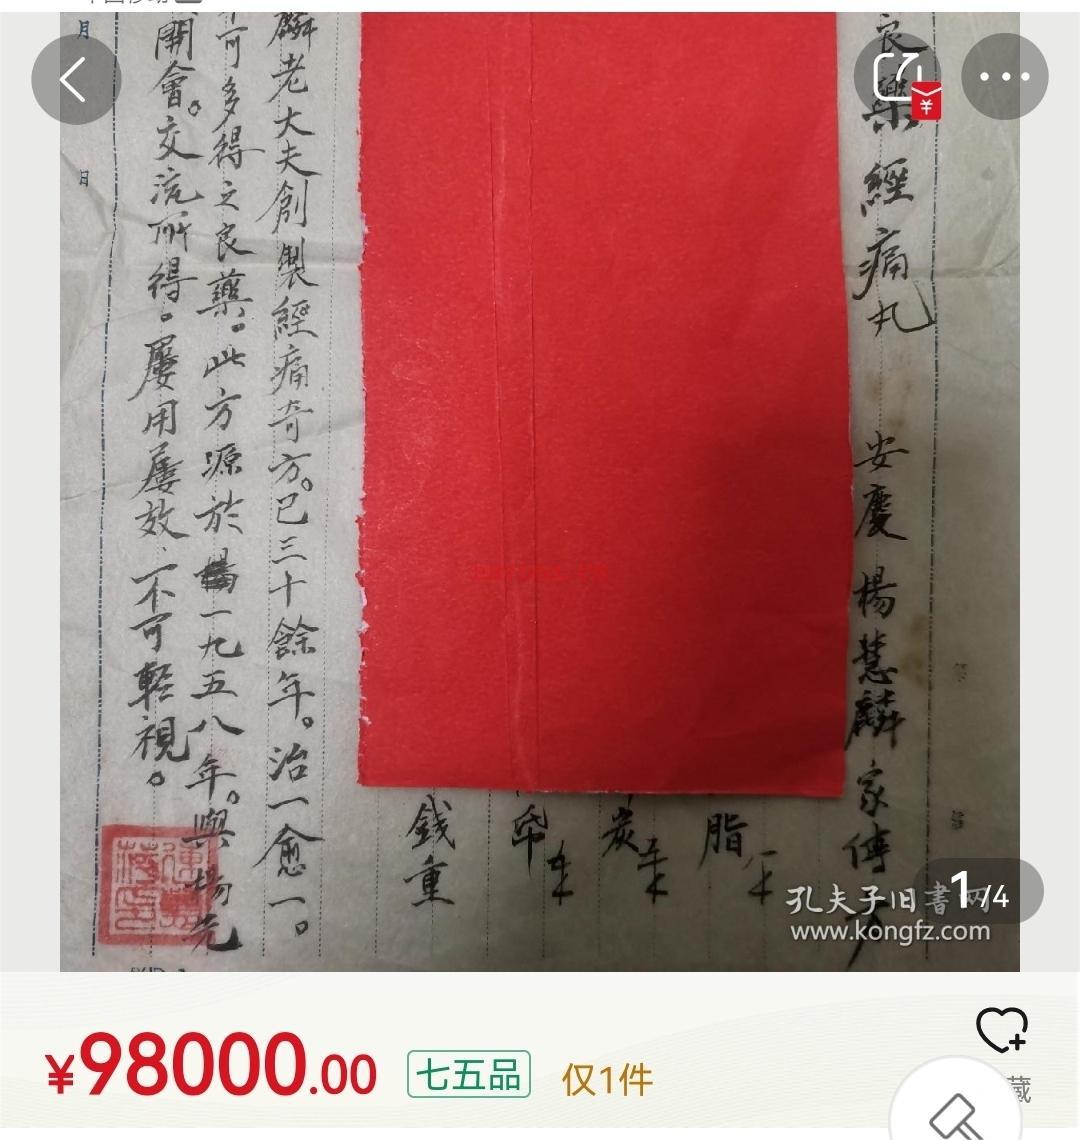 良藥經痛丸 安慶楊慧麟家傳
脂
炭
錢重
麟老大夫創製經痛奇方。已三十餘年。治一愈一。
可多得之良藥。此方源於楊一九五八年。與楊先
開會。交流所得。屢用屢效、不可輕視。
月
日
孔夫子旧書网
www.kongfz.com
1/4
¥98000.00
七五品
仅1件
藏